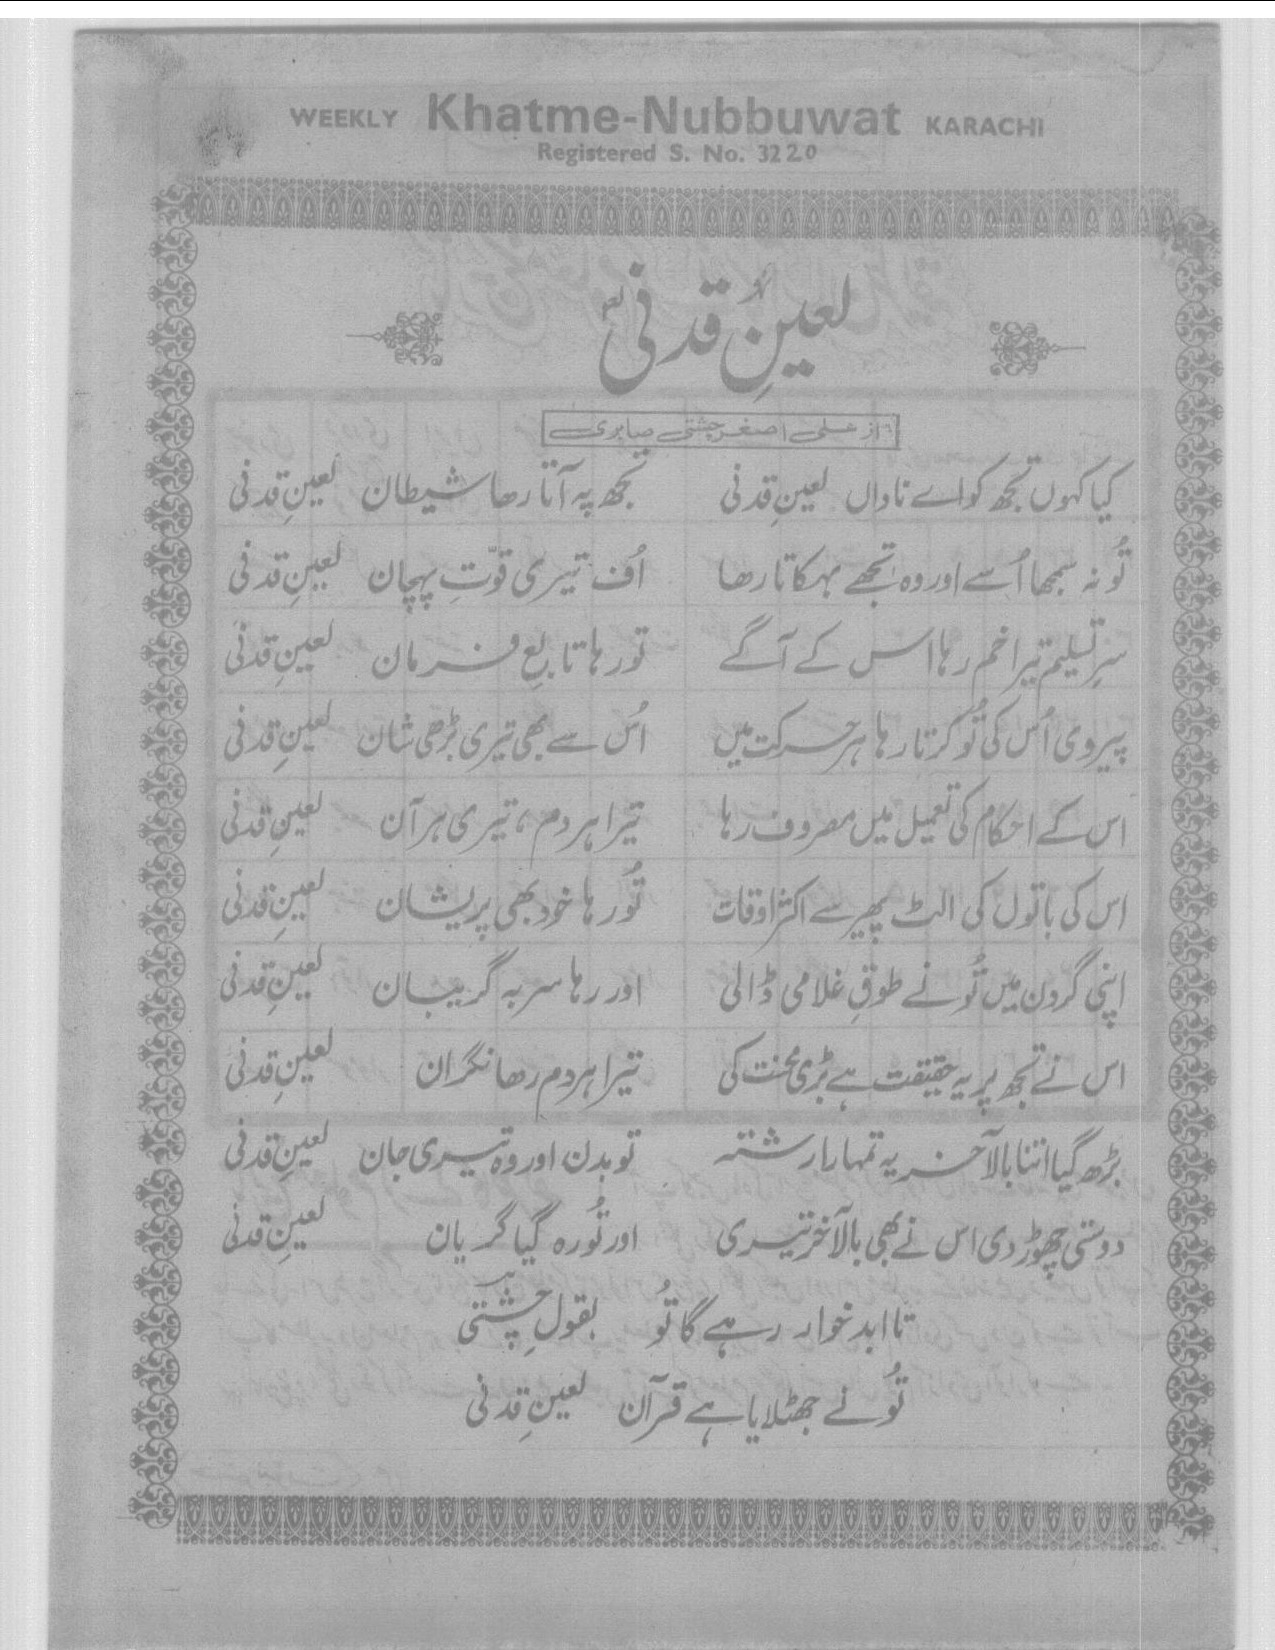 WEEKLY Khatme-Nubbuwat KARACHI
Registered S. No. 3220
لعینِ قدنی
از علی اصغر چشتی صابری
کیا کہوں تجھ کو اے ناداں لعینِ قدنی تجھ پہ آتا رھا شیطان لعینِ قدنی
تُو نہ سمجھا اُسے اور وہ تجھے بہکاتا رھا اُف تیری قوّتِ پہچان لعینِ قدنی
سرِ تسلیم تیرا خم رہا اس کے آگے تو رہا تابعِ فرمان لعینِ قدنی
پیروی اُس کی تُو کرتا رہا ہر حرکت میں اُس سے بھی تیری بڑھی شان لعینِ قدنی
اس کے احکام کی تعمیل میں مصروف رہا تیرا ہر دم، تیری ہر آن لعینِ قدنی
اس کی باتوں کی الٹ پھیر سے اکثر اوقات تُو رہا خود بھی پریشان لعینِ قدنی
اپنی گردن میں تُو نے طوقِ غلامی ڈالی اور رہا سر بہ گریبان لعینِ قدنی
اس نے تجھ پر یہ حقیقت ہے بڑی محنت کی تیرا ہر دم رھا نگران لعینِ قدنی
بڑھ گیا اتنا بالآخر یہ تمہارا رشتہ تو بدن اور وہ تیری جان لعینِ قدنی
دوستی چھوڑ دی اس نے بھی بالآخر تیری اور تُو رہ گیا گریان لعینِ قدنی
تا ابد خوار رہے گا تُو بقولِ چشتی
تُو نے جھٹلایا ہے قرآن لعینِ قدنی